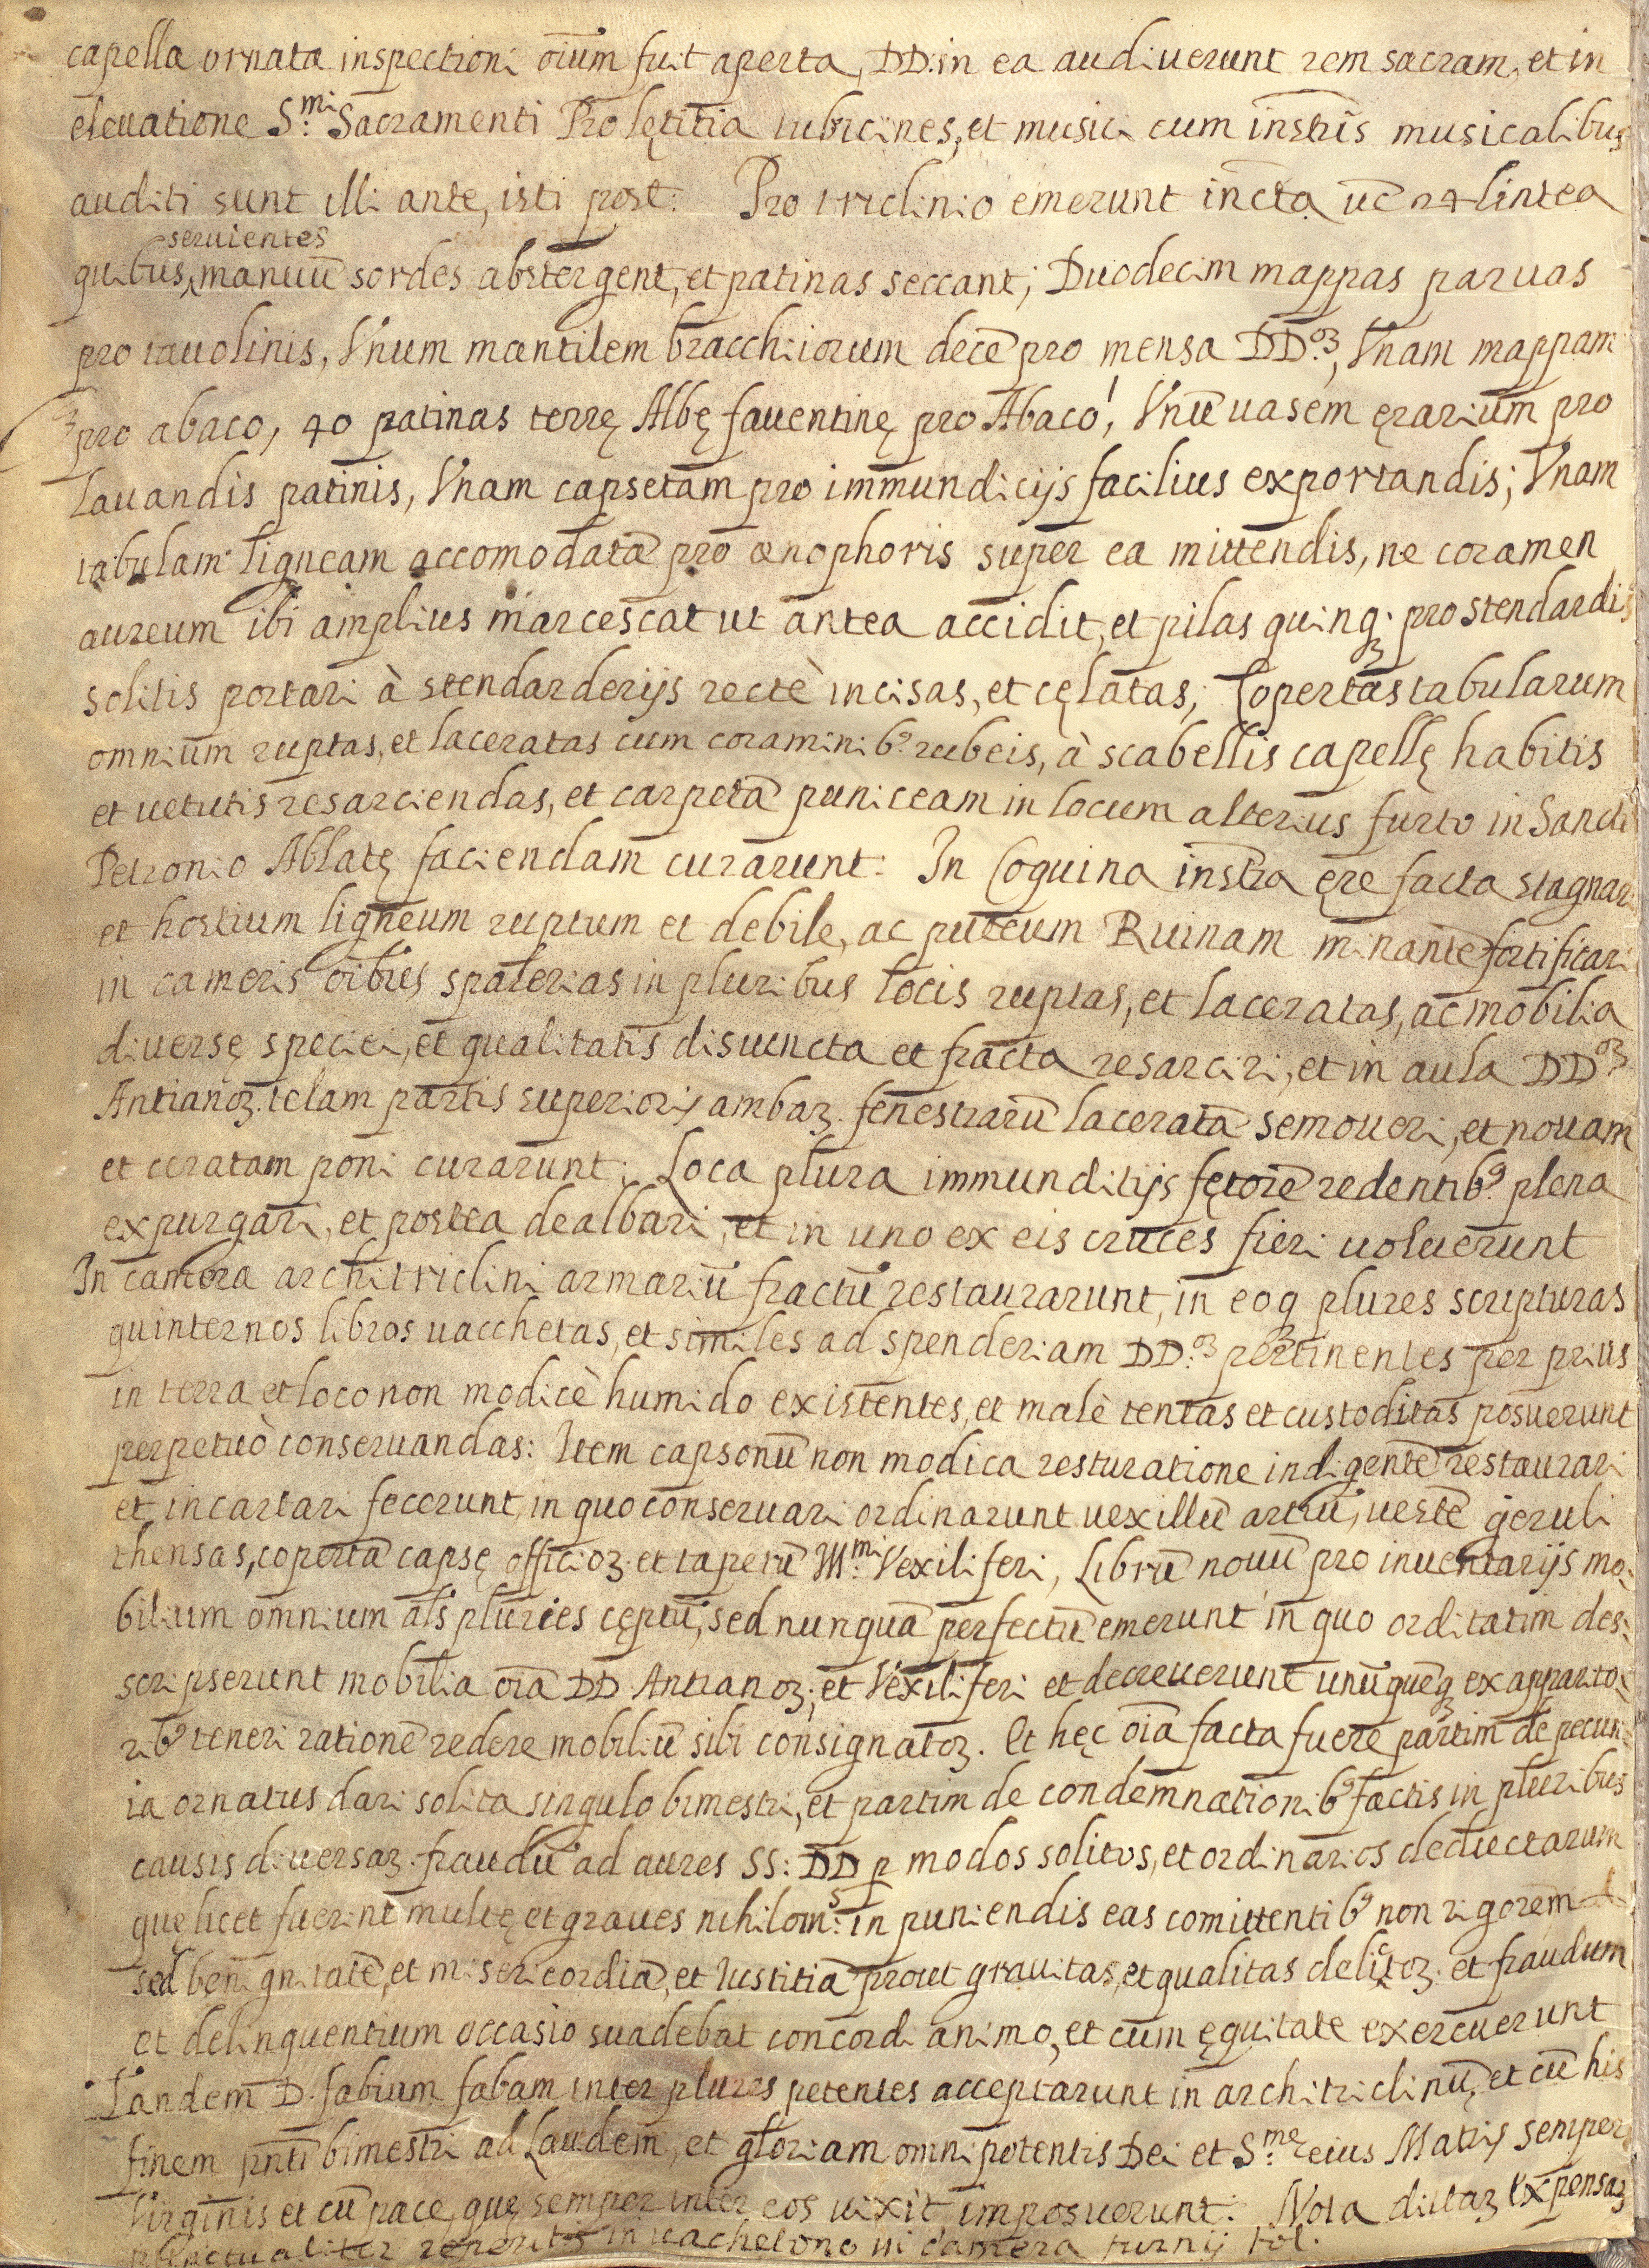 capella ornata inspectioni oium̄ fuit aperta, DD. in ea audiuerunt rem sacram, et in
eleuatione S.mi Sacramenti Pro lętitia tubicines, et musici cum instris musicalibus
auditi sunt illi ante, isti post. Pro triclinio emerunt incta uc 24 lintea
seruientes
quibus, manuū sordes abstergent, et patinas seccant; Duodecim mappas paruas
pro tauolinis, Vnum mantilem bracchiorum decē pro mensa DD.oꝝ, Vnam mappam
pro abaco, 40 patinas terrę Albę fauentinę pro Abaco, Vnū uasem ęrarium pro
lauandis patinis, Vnam capsetam pro immundicijs facilius exportandis; Vnam
tabulam ligneam accomodatā pro œnophoris super ea mittendis, ne coramen
aureum ibi amplius marcescat ut antea accidit, et pilas quinqꝫ pro stendardis
solitis portari à stendarderijs rectè incisas, et cęlatas; Copertas tabularum
omnium ruptas, et laceratas cum coraminibꝰ rubeis, à scabellis capellę habitis
et uetutis resarciendas, et carpetā puniceam in locum alterius furto in Sancti
Petronio Ablatę faciendam curarunt. In Coquina instra ęre facta stagnari
et hostium ligneum ruptum et debile, ac puteum Ruinam minantē fortificari
in cameris oibus spalerias in pluribus locis ruptas, et laceratas, ac mobilia
diuersę speciei, et qualitatis disiuncta et fracta resarciri, et in aula DD.oꝝ
Antianoꝝ telam partis superioris ambaꝝ fenestrarū laceratā semoueri, et nouam
et ceratam poni curarunt. Loca plura immunditijs fętorē redentibꝰ plena
expurgari, et postea dealbari, et in uno ex eis cruces fieri uoluerunt
In camera architriclini armariū fractū restaurarunt, in eoq plures scripturas
quinternos libros uacchetas, et similes ad spenderiam DD.oꝝ pertinentes per prius
in terra et loco non modicè humido existentes, et malè tentas et custoditas posuerunt
perpetuò conseruandas: Item capsonū non modica resturatione indigentē restaurari
et incartari fecerunt, in quo conseruari ordinarunt uexillū artiū, uestē geruli
thensas, copertā capsę officioꝝ et tapetū Ill.mi Vexiliferi, Librū nouū pro inuentarijs mo:
bilium omnium als pluries cęptū, sed nunquā perfectū emerunt in quo orditatim des:
scripserunt mobilia oia DD Antianoꝝ, et Vexiliferi et decreuerunt unūquēqꝫ ex apparito:
ribꝰ teneri rationē redere mobiliū sibi consignatoꝝ. Et hęc oia facta fuere partim de pecun:
ia ornatus dari solita singulo bimestri, et partim de condemnationibꝰ factis in pluribus
causis diuersaꝝ fraudū ad aures SS: DD ꝑ modos solitos, et ordinarios deductarum
que licet fuerint multę et graues nihilom.s in puniendis eas comittentibꝰ non rigorem
sed benignitatē, et misericordiā, et Iustitiā prout grauitas, et qualitas delictoꝝ et fraudum
et delinquentium occasio suadebat concordi animo, et cum ęquitate exercuerunt
Tandem D. fabium fabam inter plures petentes acceptarunt in architriclinū, et cū his
finem pnti bimestri ad Laudem, et gloriam omnipotentis Dei et S.me eius Matris semper
Virginis et cū pace, quę semper inter eos uixit imposuerunt. Nota dictaꝝ expensaꝝ
punctualiter reperitis in uachetono in camera turnij fol.